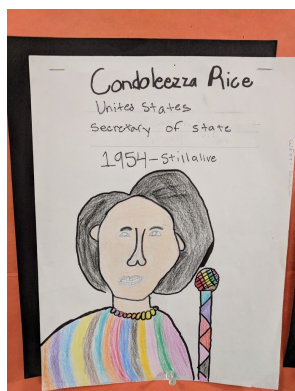 Condoleezza Rice
United States
Secretary of state
1954-Still alive